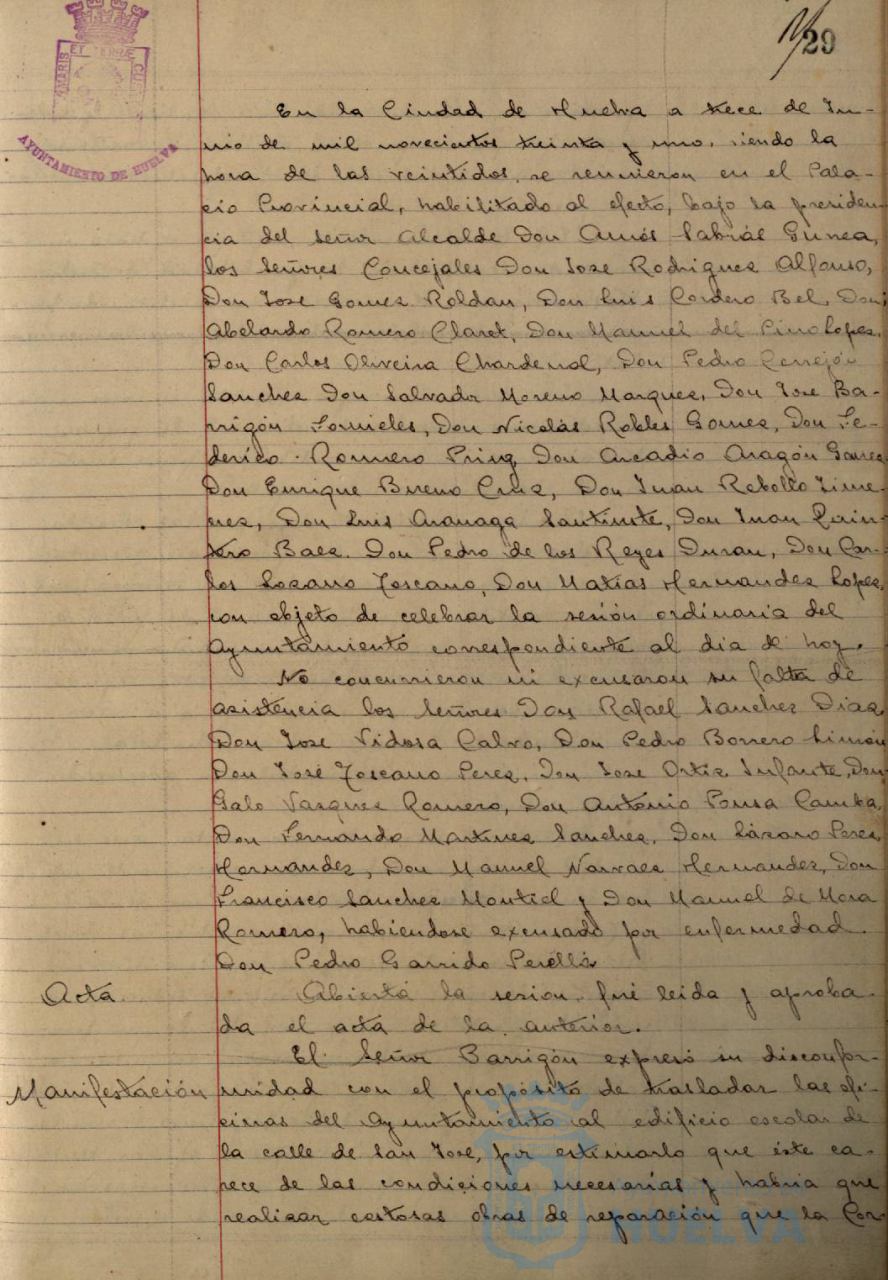 29
MARIS ET TERRAE CUS
AYUNTAMIENTO DE HUELVA
En la Ciudad de Huelva a trece de Ju-
nio de mil novecientos treinta y uno, siendo la
hora de las veintidos, se reunieron en el Pala-
cio Provincial, habilitado al efecto, bajo la presiden-
cia del Señor Alcalde Don Amós Sabrás Gurrea,
los Señores Concejales Don Jose Rodriguez Alfonso,
Don Jose Gomez Roldan, Don Luis Cordero Bel, Don
Abelardo Romero Claret, Don Manuel del Pino Lopez,
Don Carlos Oliveira Chardenal, Don Pedro Cerrejón
Sanchez Don Salvador Moreno Marquez, Don Jose Ba-
rrigón Fornieles, Don Nicolás Robles Gomez, Don Fe-
derico Romero Pring Don Arcadio Aragón Gomez
Don Enrique Bueno Cruz, Don Juan Rebollo Jime-
nez, Don Luis Aranaga Santinute, Don Juan Quin-
tero Baez. Don Pedro de los Reyes Duran, Don Car-
los Lozano Toscano, Don Matias Hernandez Lopez,
con objeto de celebrar la sesión ordinaria del
Ayuntamiento correspondiente al dia de hoy.
No concurrieron ni excusaron su falta de
asistencia los Señores Don Rafael Sanchez Diaz,
Don Jose Vidosa Calvo, Don Pedro Borrero Limón
Don José Toscano Perez, Don Jose Ortiz Infante, Don
Galo Vazquez Romero, Don Antonio Ponsa Camba,
Don Fernando Martinez Sanchez, Don Lázaro Perez
Hernandez, Don Manuel Narvaez Hernandez, Don
Francisco Sanchez Montiel y Don Manuel de Mora
Romero, habiendose excusado por enfermedad.
Don Pedro Garrido Perelló
Acta. Abierta la sesion, fué leida y aproba-
da el acta de la anterior.
El Señor Barrigón expresó su disconfor-
Manifestación midad con el propósito de trasladar las ofi-
cinas del Ayuntamiento al edificio escolar de
la calle de San Jose, por estimarlo que éste ca-
rece de las condiciones necesarias y habria que
realizar costosas obras de reparación que la Cor-
HUELVA